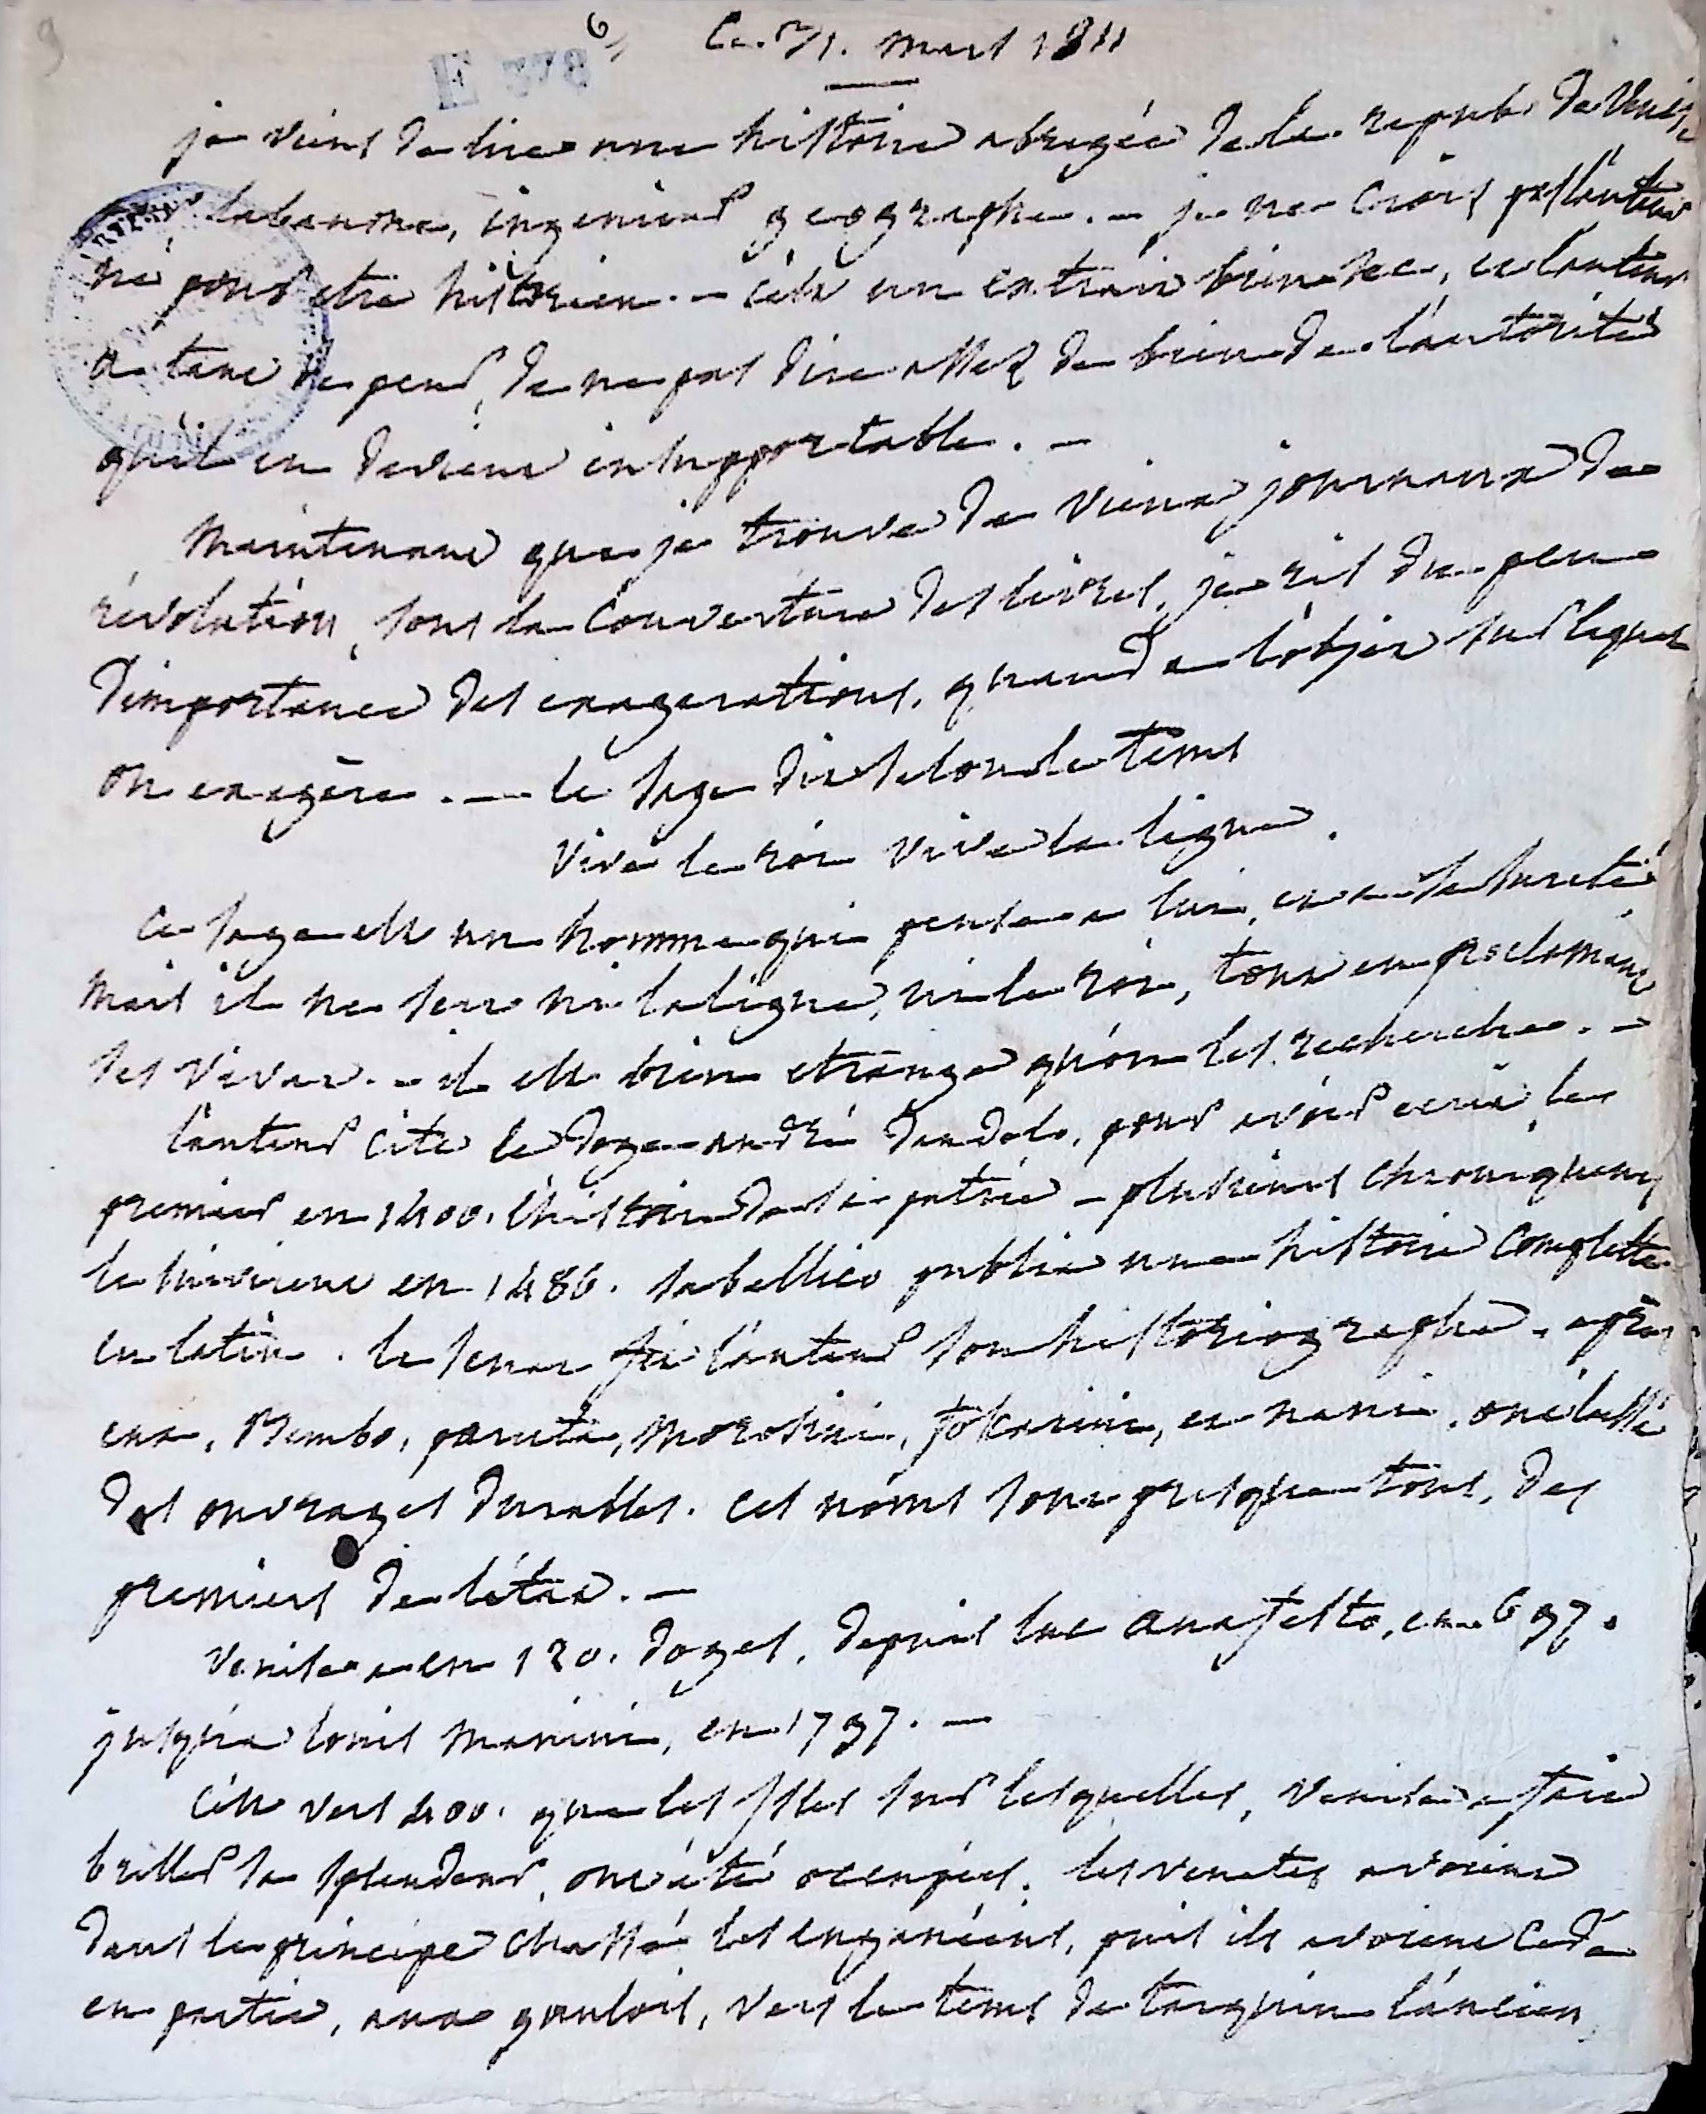 9
6
Ce. 21. mars 1811
E 378
je viens de lire une histoire abrégée de la repub. de Venise
labaume, ingenieur geographe. - je ne crois pas l'auteur
né pour etre historien. - c'est un extrait bien sec, et l'auteur
a tant de peur, de ne pas dire assez de bien de l'autorité
qu'il en devient insupportable. -
maintenant que je trouve de vieux journaux de
révolution, sous la couverture des livres, je ris du peu
d'importance des exagerations, quand a l'objet sur lequel
on exagère. - le sage dit selon le tems
vive le roi vive la ligue.
ce sage est un homme qui pense a lui, et a sa sureté
mais il ne sert ni la ligue, ni le roi, tout en proclamant
ses vivat. - il est bien etrange qu'on les recherche. -
l'auteur cite le doge andré dandolo, pour avoir ecrit, le
premier en 1400. l'histoire de sa patrie - plusieurs chroniqueurs
le suivirent en 1486. sabellico publia une histoire complette
en latin. le senat fit l'auteur son historiographe. après
eux, Bembo, paruta, morosini, foscarini, et nani, ont laissé
des ouvrages durables. ces noms sont presque tous, des
premiers de l'état. -
venise a eu 120. doges, depuis luc anafesto, en 697.
jusqu'a louis manini, en 1797. -
c'est vers 400. que les isles sur lesquelles, venise a fait
briller sa splendeur, ont été occupées. les venetes avoient
dans le principe chassé les euganéens, puis ils avoient cedé
en partie, aux gaulois, vers le tems de tarquin l'ancien,